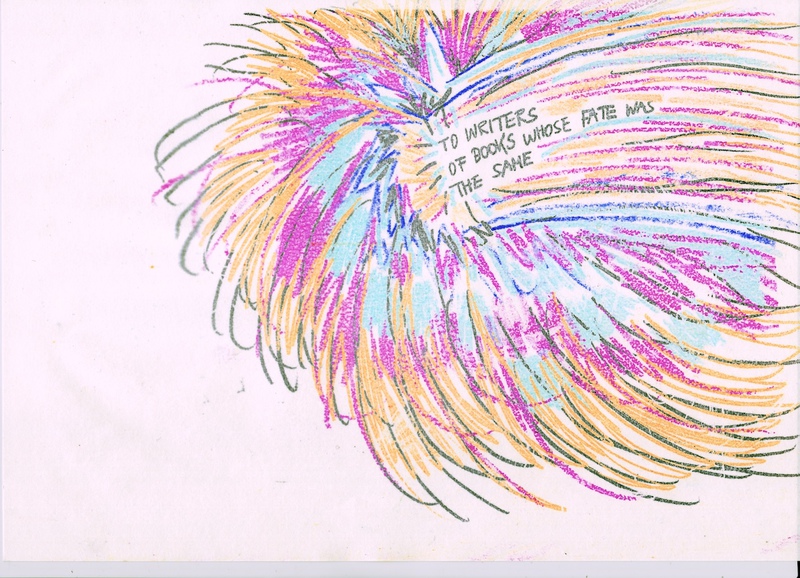 TO WRITERS
OF BOOKS WHOSE FATE WAS
THE SAME